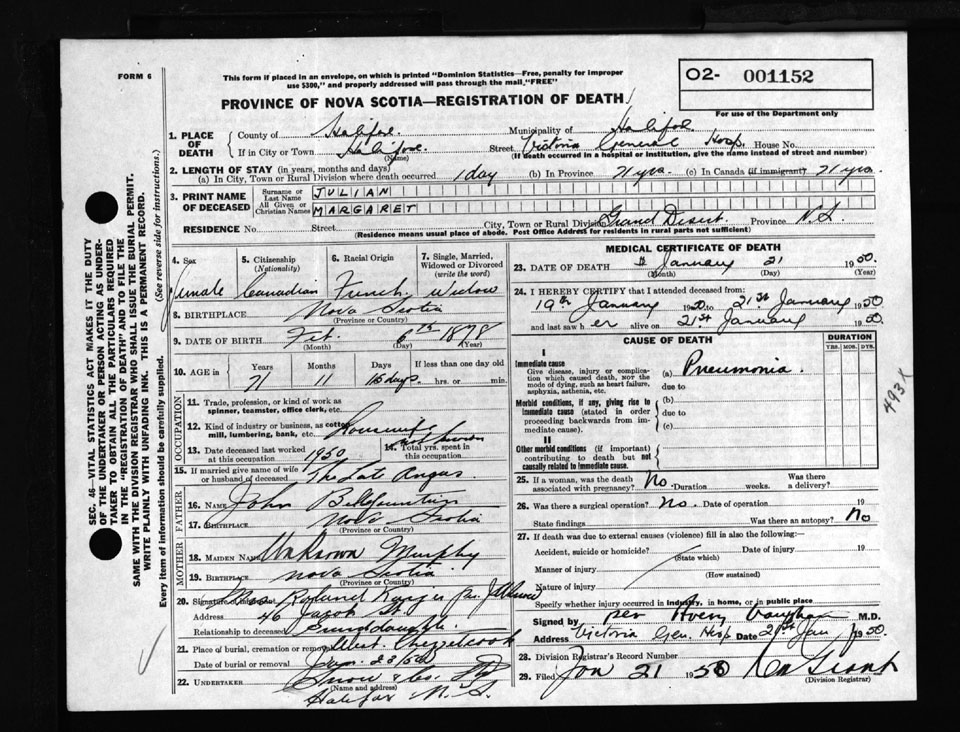 FORM 6
This form if placed in an envelope, on which is printed "Dominion Statistics—Free, penalty for improper
use $300," and properly addressed will pass through the mail "FREE"
O2- 001152
For use of the Department only
PROVINCE OF NOVA SCOTIA—REGISTRATION OF DEATH
1. PLACE OF DEATH County of Halifax Municipality of Halifax
If in City or Town Halifax (Name) Street Victoria General Hosp. House No.
(If death occurred in a hospital or institution, give the name instead of street and number)
2. LENGTH OF STAY (in years, months and days)
(a) In City, Town or Rural Division where death occurred 1 day (b) In Province 71 yrs. (c) In Canada (if immigrant) 71 yrs.
3. PRINT NAME OF DECEASED Surname or Last Name JULIAN
All Given or Christian Names MARGARET
RESIDENCE No. Street City, Town or Rural Division Grand Desert. Province N.S.
(Residence means usual place of abode. Post Office Address for residents in rural parts not sufficient)
4. Sex 5. Citizenship (Nationality) 6. Racial Origin 7. Single, Married, Widowed or Divorced (write the word)
Female Canadian French Widow
8. BIRTHPLACE Nova Scotia
(Province or Country)
9. DATE OF BIRTH Feb. 6th 1878
(Month) (Day) (Year)
10. AGE in Years Months Days If less than one day old
71 11 15 days. hrs. or min.
OCCUPATION
11. Trade, profession, or kind of work as
spinner, teamster, office clerk, etc.
12. Kind of industry or business, as cotton
mill, lumbering, bank, etc. Housewife
13. Date deceased last worked at this occupation 1950 14. Total yrs. spent in this occupation not known
15. If married give name of wife or husband of deceased The Late Angus
FATHER
16. Name John
17. BIRTHPLACE Nova Scotia
(Province or Country)
MOTHER
18. MAIDEN NAME Unknown Murphy
19. BIRTHPLACE Nova Scotia
(Province or Country)
20. Signature of informant
Address 46 Jacob St.
Relationship to deceased Granddaughter
21. Place of burial, cremation or removal West Chezzetcook
Date of burial or removal Jan. 23/50
22. UNDERTAKER Snow & Co.
(Name and address)
Halifax N.S.
MEDICAL CERTIFICATE OF DEATH
23. DATE OF DEATH January 21 1950
(Month) (Day) (Year)
24. I HEREBY CERTIFY that I attended deceased from:
19th January 1950 to 21st January 1950
and last saw her alive on 21st January 1950.
CAUSE OF DEATH DURATION
YRS. MOS. DYS.
I
Immediate cause
Give disease, injury or complication which caused death, not the mode of dying, such as heart failure, asphyxia, asthenia, etc.
(a) Pneumonia.
due to
Morbid conditions, if any, giving rise to immediate cause (stated in order proceeding backwards from immediate cause).
(b)
due to
(c)
II
Other morbid conditions (if important) contributing to death but not causally related to immediate cause.
493 X
25. If a woman, was the death associated with pregnancy? No. Duration weeks. Was there a delivery?
26. Was there a surgical operation? No. Date of operation 19
State findings Was there an autopsy? No
27. If death was due to external causes (violence) fill in also the following:—
Accident, suicide or homicide? Date of injury 19
(State which)
Manner of injury
(How sustained)
Nature of injury
Specify whether injury occurred in industry, in home, or in public place
Signed by per Avery Vaughan M.D.
Address Victoria Gen. Hosp Date 21st Jan 1950.
28. Division Registrar's Record Number
29. Filed Jan 21 1950
(Division Registrar)
SEC. 46—VITAL STATISTICS ACT MAKES IT THE DUTY
OF THE UNDERTAKER OR PERSON ACTING AS UNDERTAKER
TO OBTAIN ALL THE PARTICULARS REQUIRED
IN THE "REGISTRATION OF DEATH" AND TO FILE THE
SAME WITH THE DIVISION REGISTRAR WHO SHALL ISSUE THE BURIAL PERMIT.
WRITE PLAINLY WITH UNFADING INK. THIS IS A PERMANENT RECORD.
Every item of information should be carefully supplied. (See reverse side for instructions.)